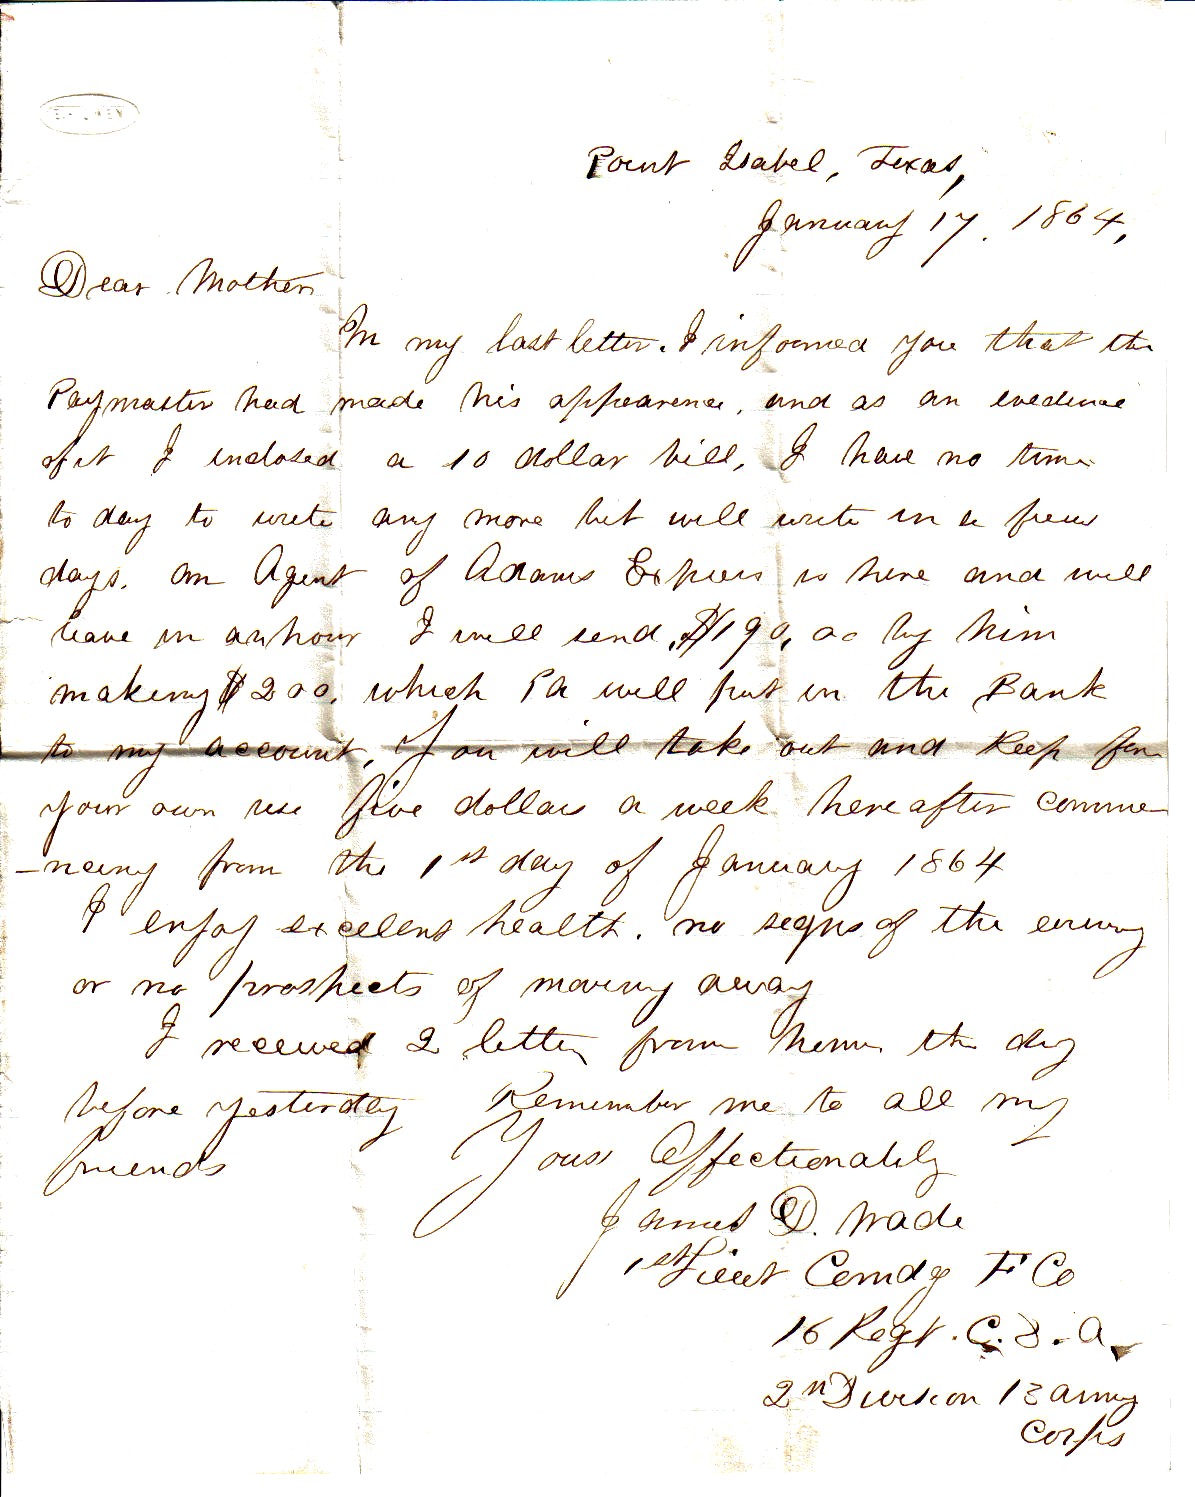 Point Isabel, Texas,
January 17. 1864,
Dear Mother
In my last letter. I informed you that the
Paymaster had made his appearence, and as an evidence
of it I inclosed a 10 dollar bill, I have no time
to day to write any more but will write in a few
days. an Agent of Adams Express is here and will
leave in an hour I will send, $190, oo by him
making $200, which Pa will put in the Bank
to my account, You will take out and keep for
your own use five dollars a week hereafter comme-
-ncing from the 1st day of January 1864
I enjoy excelent health. no signs of the enemy
or no prospects of moving away
I received 2 letters from home the day
before yesterday Remember me to all my
friends Yours Affectionately
James D. Wade
1st Lieut Comdg F Co
16 Regt. C. D. A.
2n Division 13 army
Corps